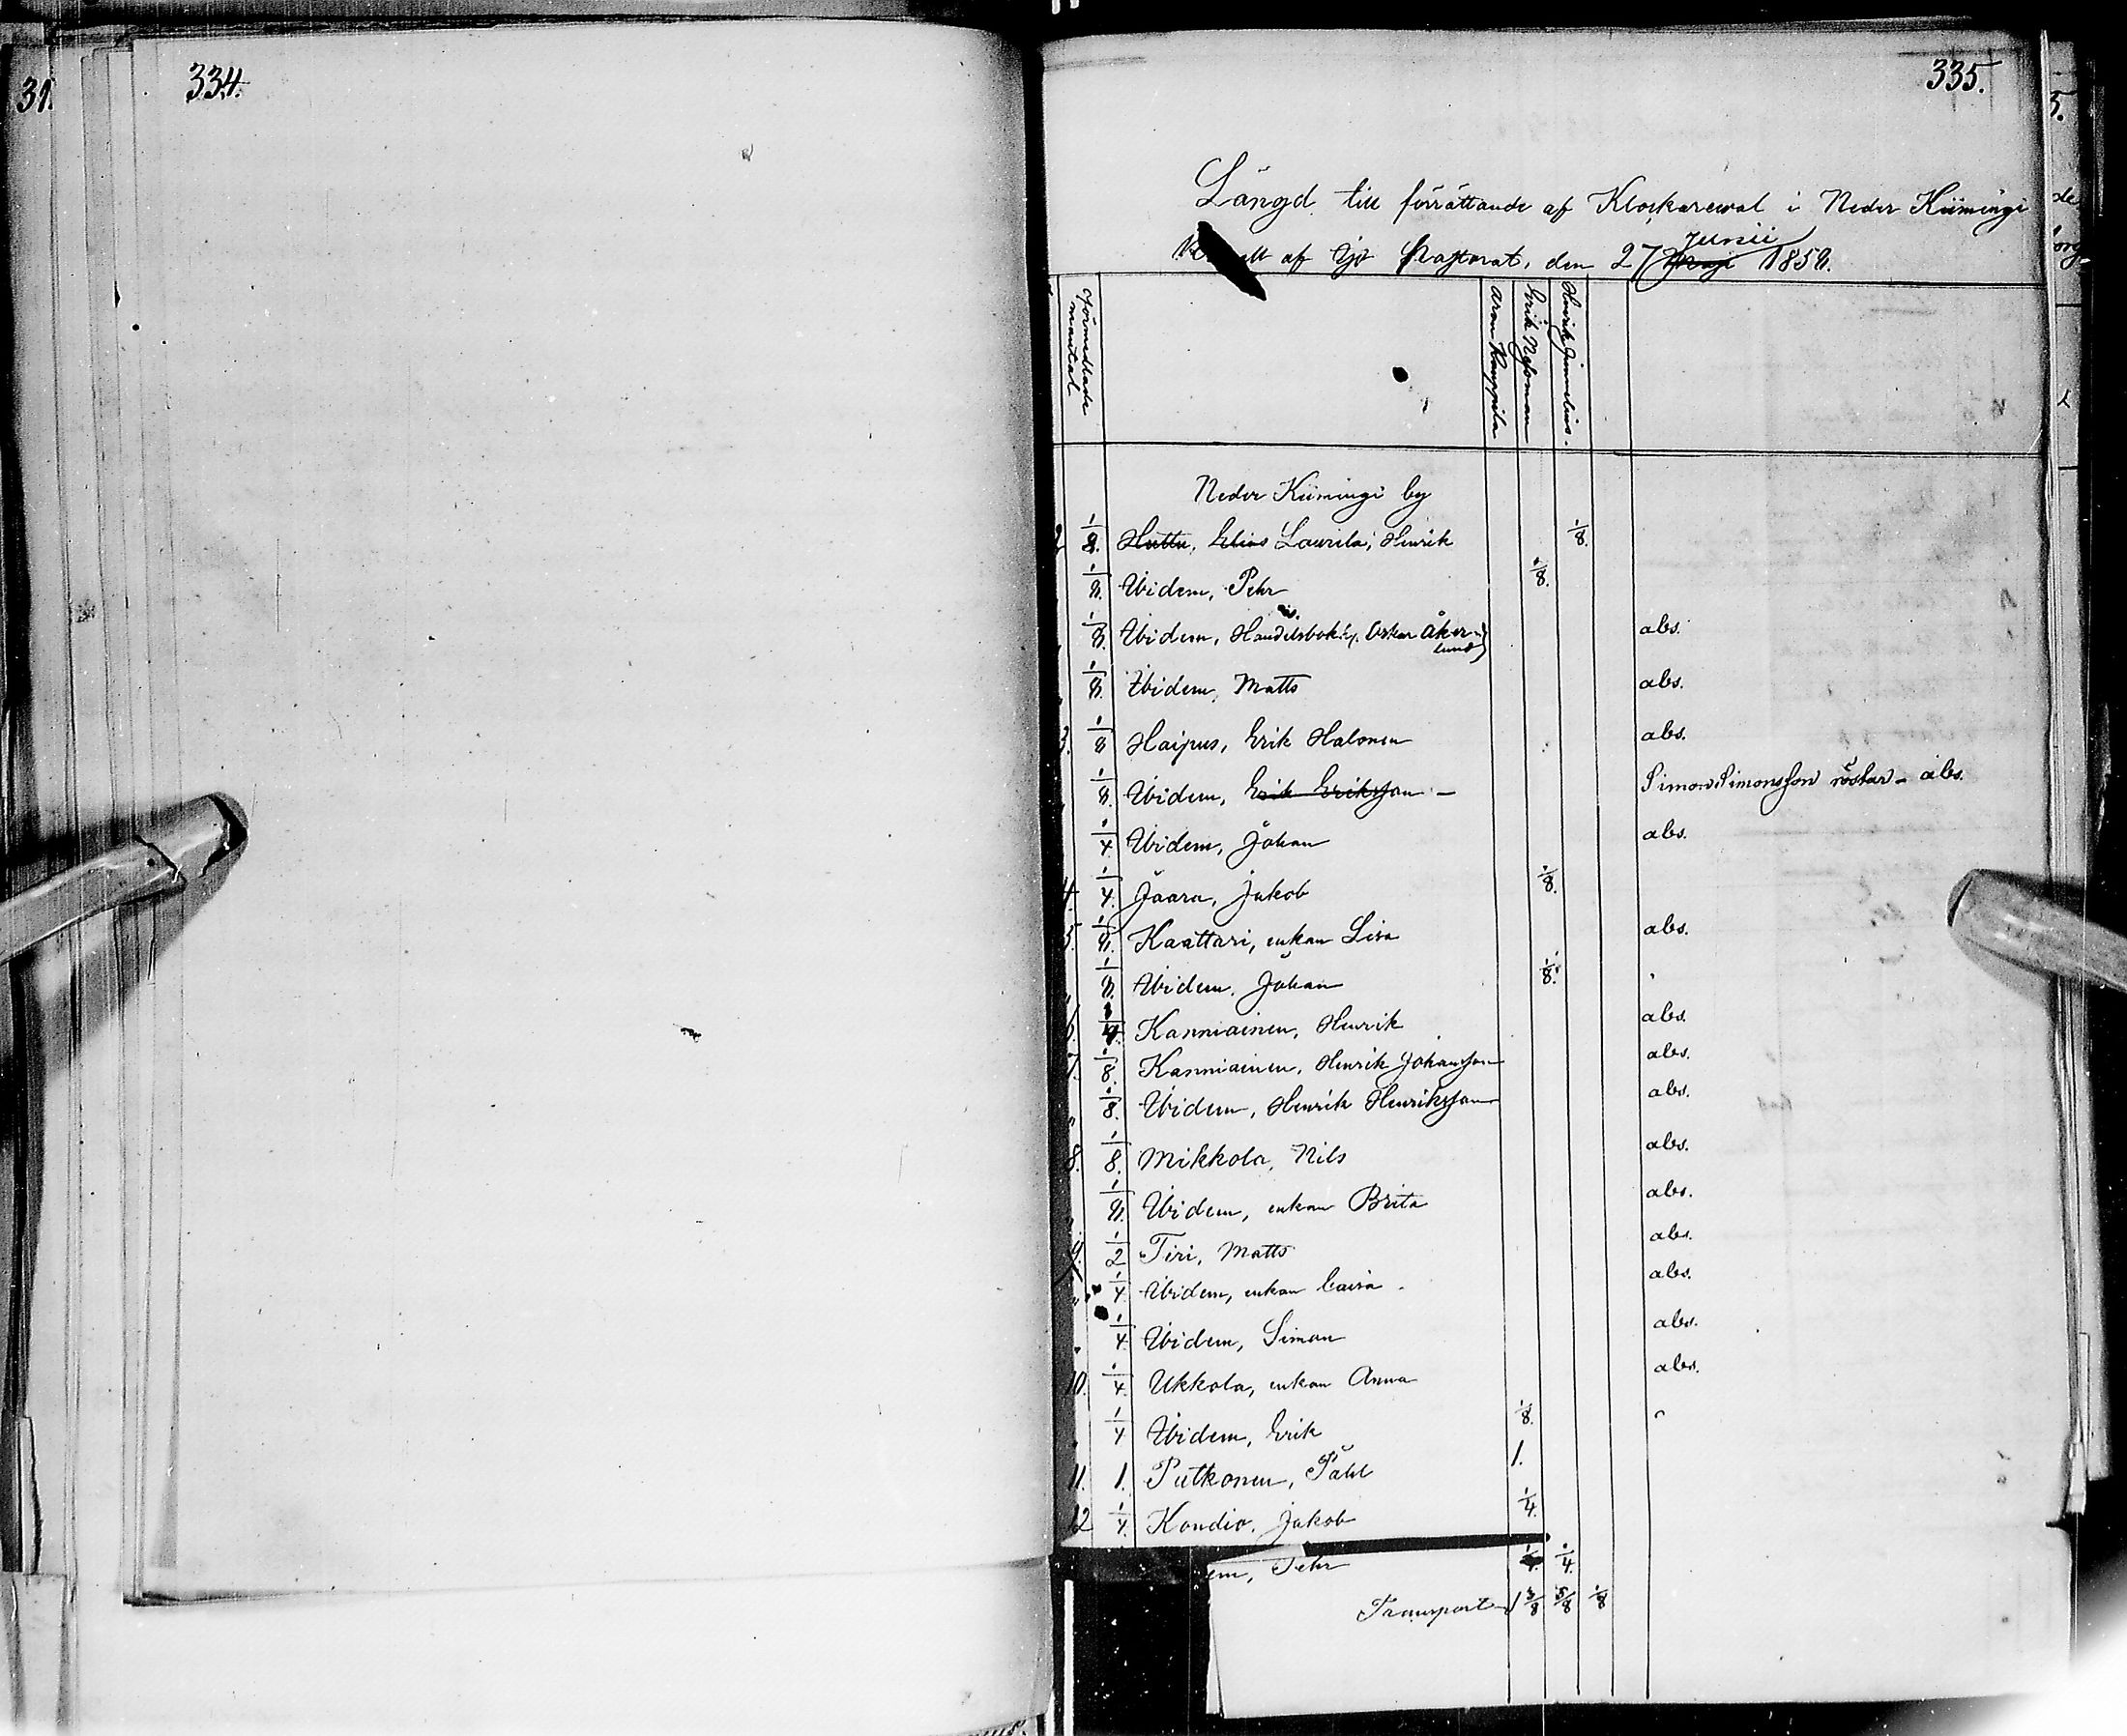 31.
334.
335.
Längd till förrättande af Klockareval i Neder Kiimingi
af Ijo Pastorat, den 27 Maji Junii 1858.
Förmedlade mantal
Aron Kauppila
Erik Nyfoman
Henrik Junnelius.
Neder Kiimingi by
2 1/8. Huttu, Elias Laurila, Henrik 1/8.
1/8. Ibidem, Pehr 1/8.
1/8. Ibidem, Handelsbok. Oskar Åkerlund abs.
1/8. Ibidem, Matts abs.
3. 1/8 Haipus, Erik Halonen abs.
1/8. Ibidem, Erik Eriksson - Simon Simonsson röstar - abs.
1/4. Ibidem, Johan abs.
4 1/4. Jaara, Jakob 1/8.
5. 1/8. Kaattari, enkan Lisa abs.
1/8. Ibidem, Johan 1/8.
6. 1/4. Kanniainen, Henrik abs.
7. 1/8. Kanniainen, Henrik Johansson abs.
1/8. Ibidem, Henrik Henriksson abs.
8. 1/8. Mikkola, Nils abs.
1/8. Ibidem, enkan Brita abs.
9. 1/2 Tiri, Matts abs.
" 1/4. Ibidem, enkan Caisa abs.
1/4. Ibidem, Simon abs.
10. 1/4. Ukkola, enkan Anna abs.
1/4 Ibidem, Erik 1/8.
11. 1. Putkonen, Påhl 1.
12 1/4. Kondio, Jakob 1/4.
em, Pehr 1/4. 1/4.
Transport 1 3/8 5/8 1/8